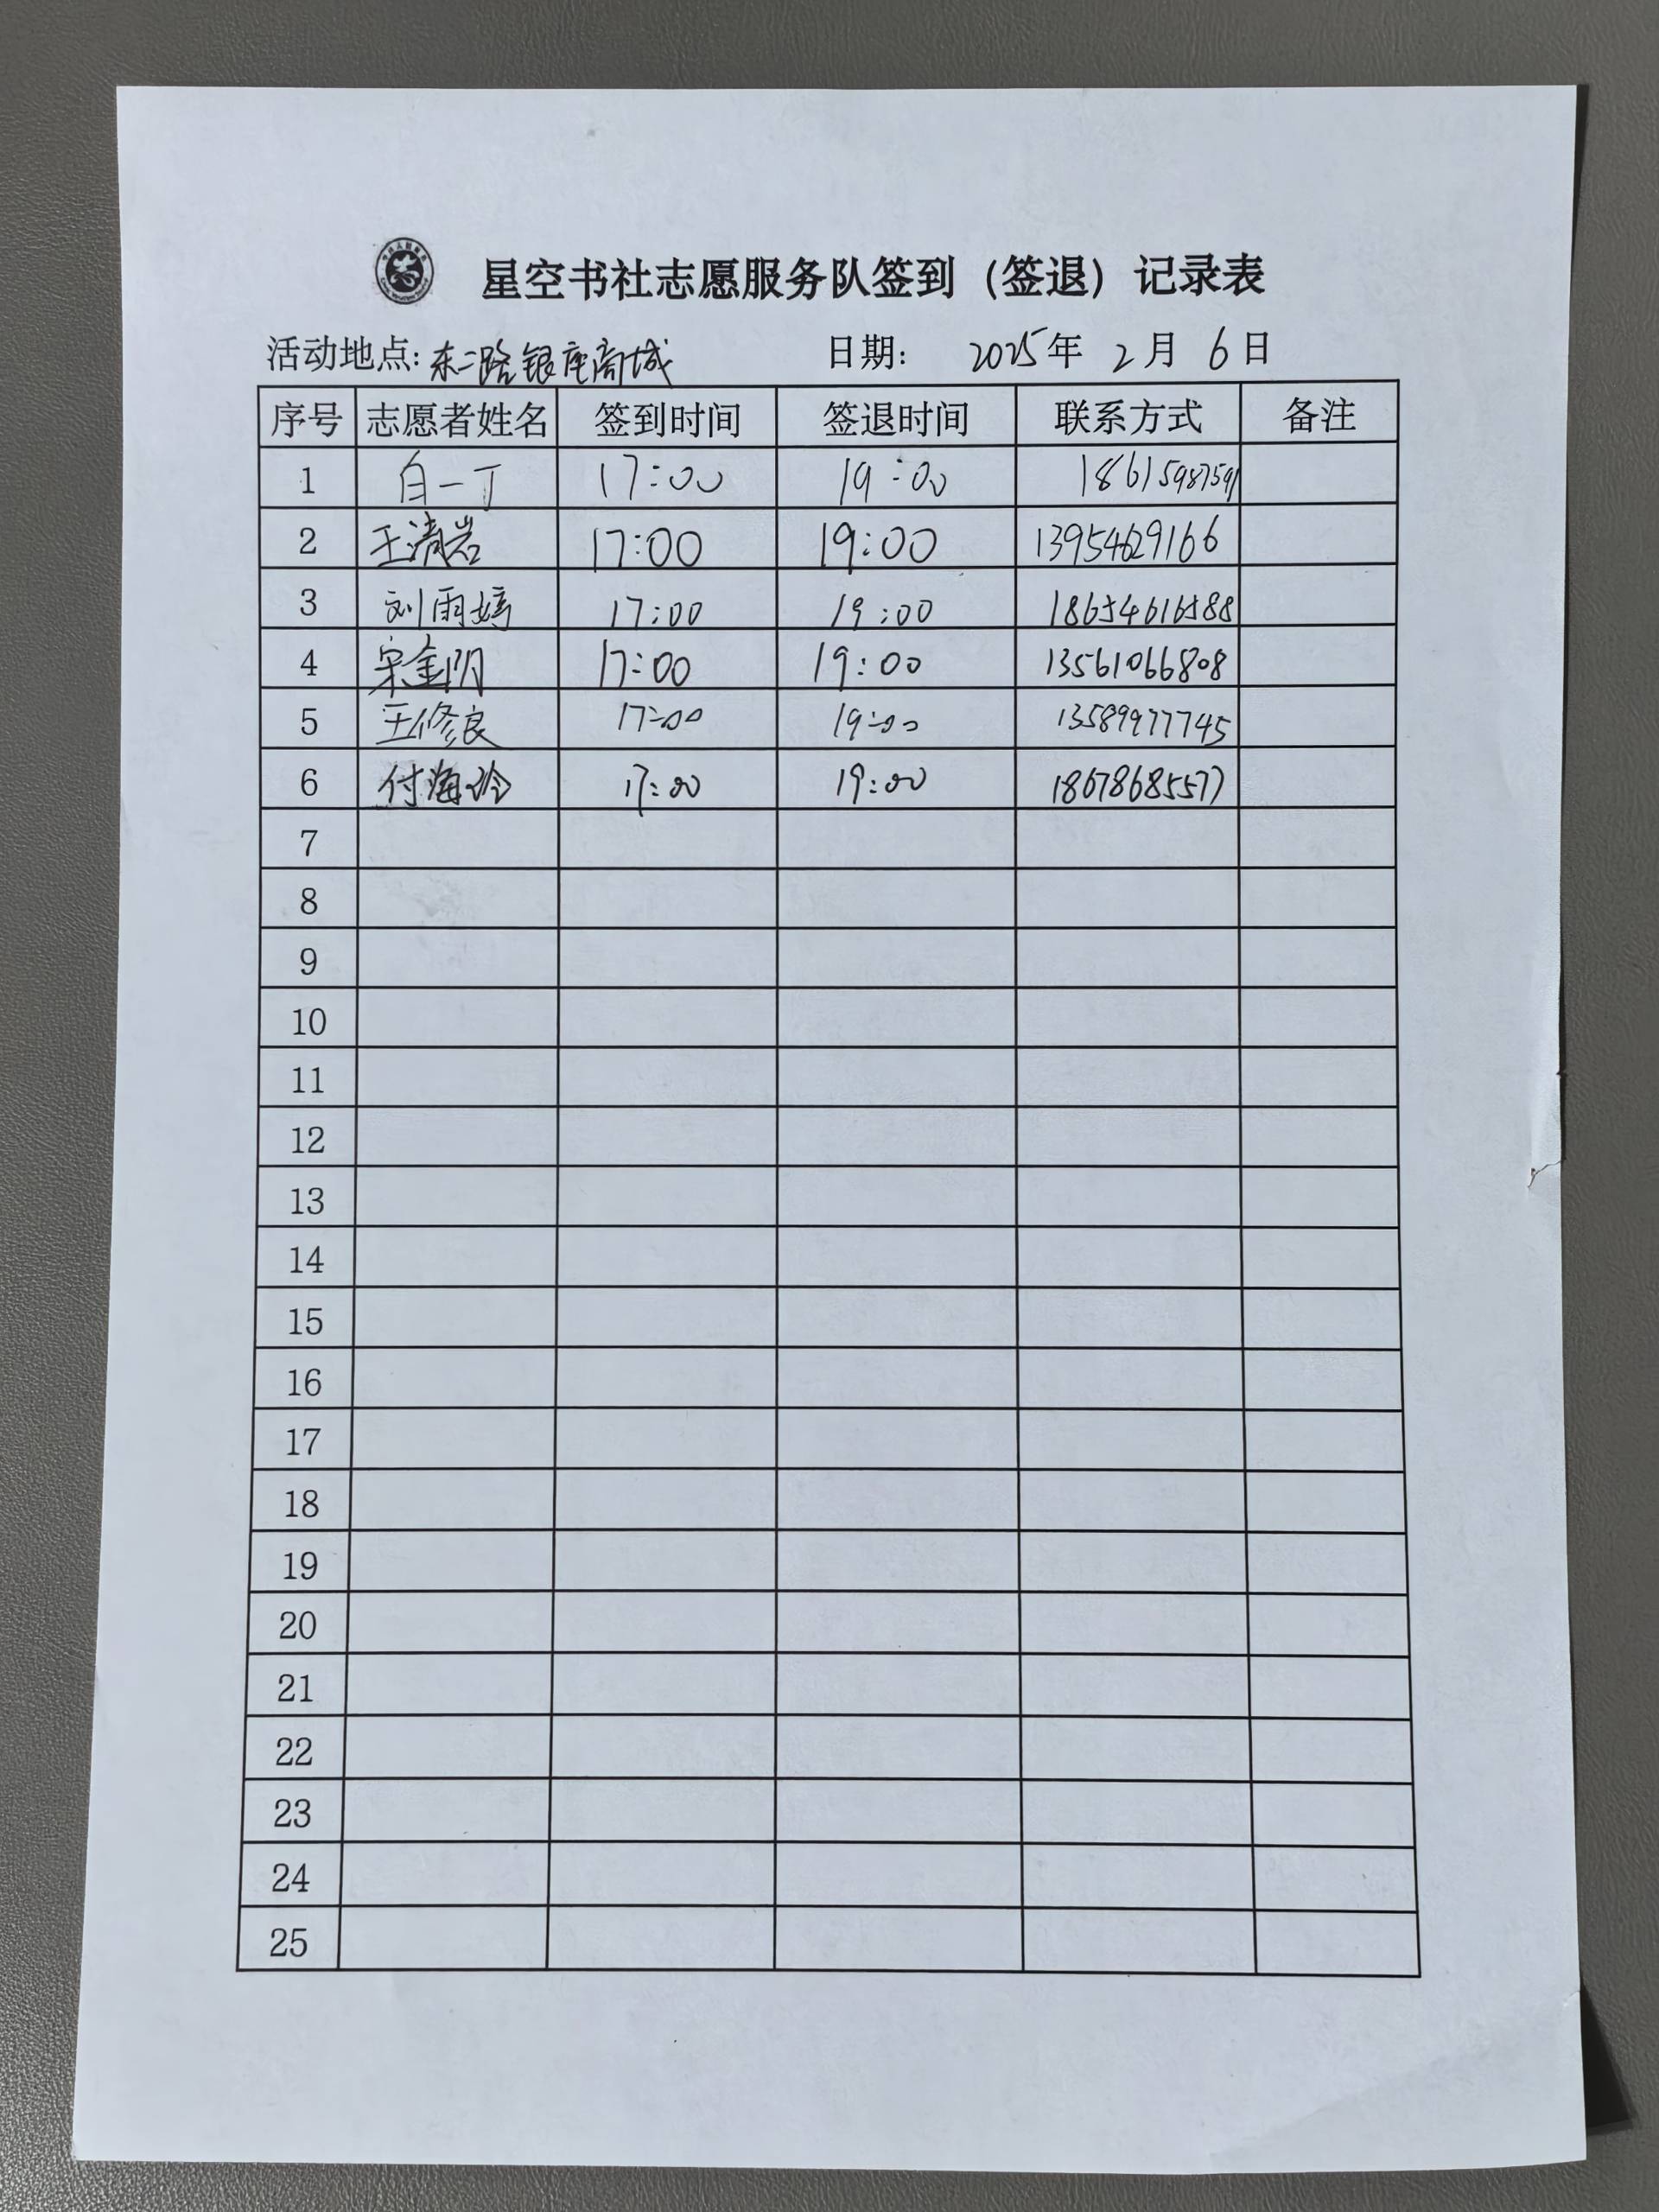 星空书社志愿服务队签到（签退）记录表
活动地点: 东二路银座商城 日期: 2025年 2月 6日
序号 志愿者姓名 签到时间 签退时间 联系方式 备注
1 白一丁 17:00 19:00 18615987591
2 王清岩 17:00 19:00 13954629166
3 刘雨婷 17:00 19:00 18654616588
4 宋金阴 17:00 19:00 13561066808
5 王修良 17:00 19:00 13589977745
6 付海玲 17:00 19:00 18678685577
7
8
9
10
11
12
13
14
15
16
17
18
19
20
21
22
23
24
25